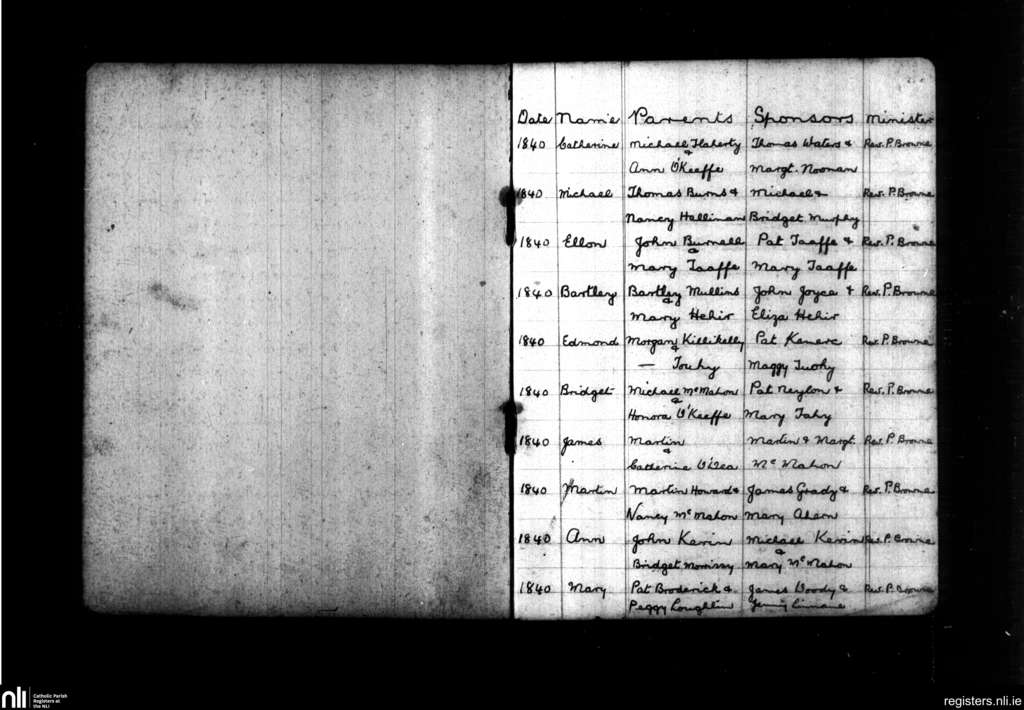 Date Name Parents Sponsors Minister
1840 Catherine Michael Flaherty Thomas Waters & Rev. P. Browne
&
Ann O'Keeffe Margt. Noonan
1840 Michael Thomas Burns & Michael & Rev. P. Browne
Nancy Hallinan Bridget Murphy
1840 Ellen John Burnell Pat Taaffe & Rev. P. Browne
&
Mary Taaffe Mary Taaffe
1840 Bartley Bartley Mullins John Joyce & Rev. P. Browne
&
Mary Hehir Eliza Hehir
1840 Edmond Morgan Killikelly Pat Rev. P. Browne
&
— Touhy Maggy Tuohy
1840 Bridget Michael McMahon Pat Neylon & Rev. P. Browne
&
Honora O'Keeffe Mary Fahy
1840 James Martin Martin & Margt. Rev. P. Browne
&
Catherine O'Dea Mc Mahon
1840 Martin Martin Howard & James Grady & Rev. P. Browne
Nancy McMahon Mary Ahern
1840 Ann John Kerin Michael Kerin Rev. P. Browne
&
Bridget Morrissy Mary McMahon
1840 Mary Pat Broderick & James & Rev. P. Browne
Peggy Loughlin Linnane
nli
Catholic Parish
Registers at
the NLI
registers.nli.ie